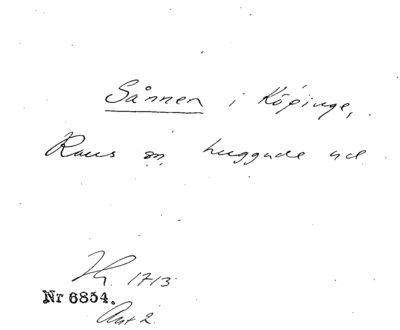 Sånnen i Köpinge,
Raus sn huggude ved
1713
Nr 6854.